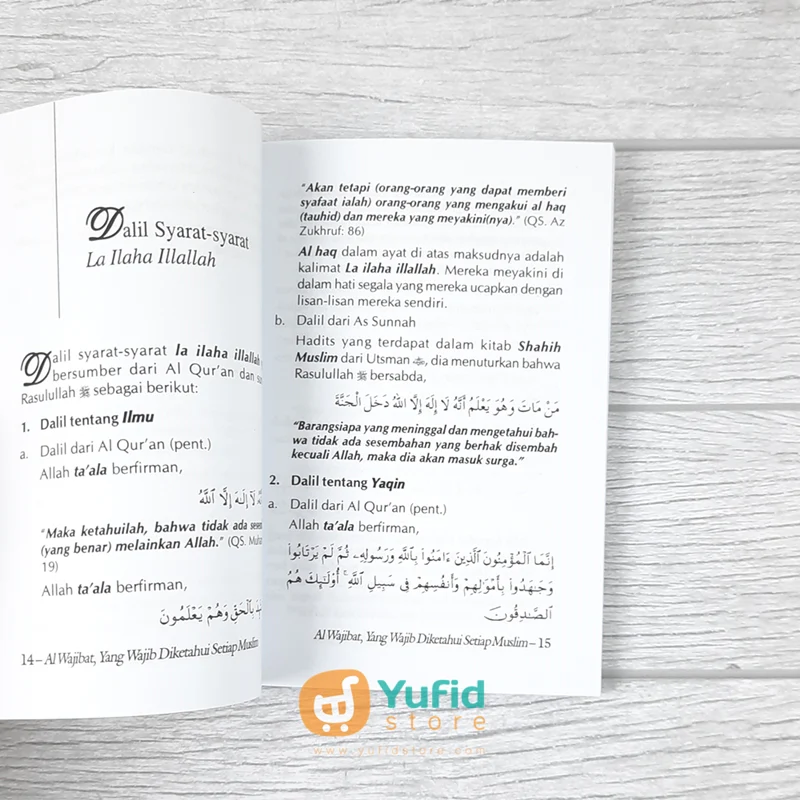 Dalil Syarat-syarat
La Ilaha Illallah
Dalil syarat-syarat la ilaha illallah
bersumber dari Al Qur'an dan
Rasulullah ﷺ sebagai berikut:
1. Dalil tentang Ilmu
a. Dalil dari Al Qur'an (pent.)
Allah ta'ala berfirman,
لَآ إِلَـٰهَ إِلَّا ٱللَّهُ
"Maka ketahuilah, bahwa tidak ada
(yang benar) melainkan Allah." (QS.
19)
Allah ta'ala berfirman,
بِٱلْحَقِّ وَهُمْ يَعْلَمُونَ
14 – Al Wajibat, Yang Wajib Diketahui Setiap Muslim
"Akan tetapi (orang-orang yang dapat memberi
syafaat ialah) orang-orang yang mengakui al haq
(tauhid) dan mereka yang meyakini(nya)." (QS. Az
Zukhruf: 86)
Al haq dalam ayat di atas maksudnya adalah
kalimat La ilaha illallah. Mereka meyakini di
dalam hati segala yang mereka ucapkan dengan
lisan-lisan mereka sendiri.
b. Dalil dari As Sunnah
Hadits yang terdapat dalam kitab Shahih
Muslim dari Utsman, dia menuturkan bahwa
Rasulullah ﷺ bersabda,
مَنْ مَاتَ وَهُوَ يَعْلَمُ أَنَّهُ لَا إِلَهَ إِلَّا اللهُ دَخَلَ الْجَنَّةَ
"Barangsiapa yang meninggal dan mengetahui bah-
wa tidak ada sesembahan yang berhak disembah
kecuali Allah, maka dia akan masuk surga."
2. Dalil tentang Yaqin
a. Dalil dari Al Qur'an (pent.)
Allah ta'ala berfirman,
إِنَّمَا ٱلْمُؤْمِنُونَ ٱلَّذِينَ ءَامَنُوا۟ بِٱللَّهِ وَرَسُولِهِۦ ثُمَّ لَمْ يَرْتَابُوا۟
وَجَـٰهَدُوا۟ بِأَمْوَٰلِهِمْ وَأَنفُسِهِمْ فِى سَبِيلِ ٱللَّهِ ۚ أُو۟لَـٰٓئِكَ هُمُ
ٱلصَّـٰدِقُونَ
Al Wajibat, Yang Wajib Diketahui Setiap Muslim – 15
Yufid
store
www.yufidstore.com